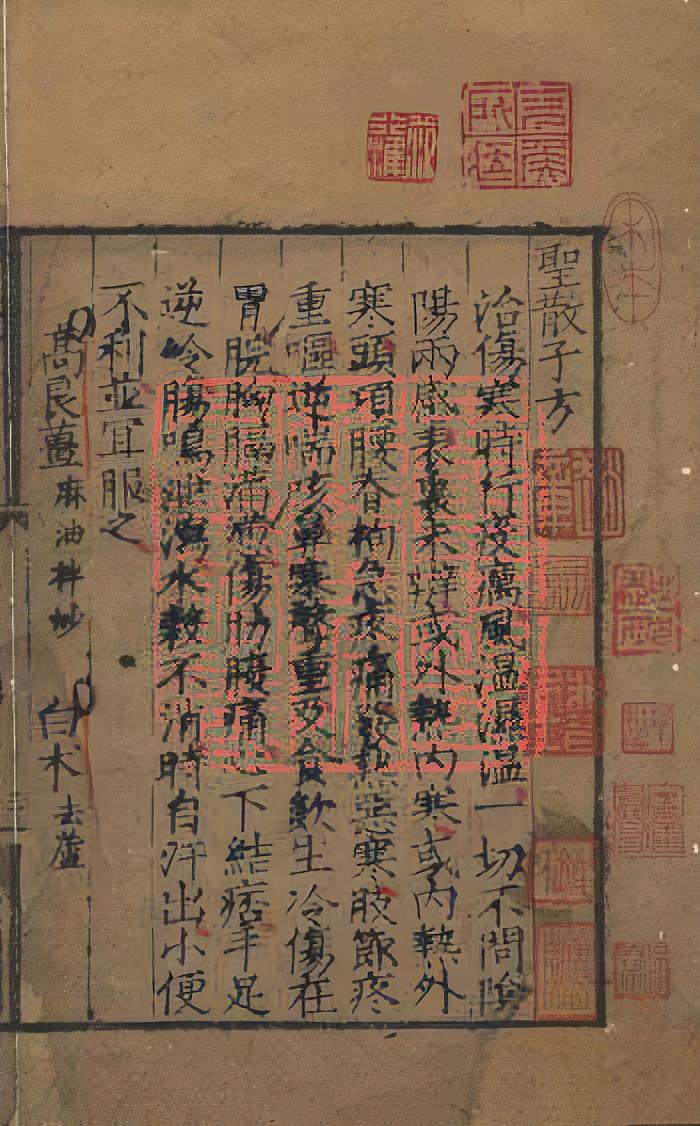 聖散子方
治傷寒時行疫癘風温濕温一切不問陰
陽兩感表裏未辨或外熱内寒或内熱外
寒頭項腰脊拘急疼痛發熱惡寒肢節疼
重嘔逆喘咳鼻塞聲重及食飲生冷傷在
胃脘胸膈滿悶傷肋腰痛心下結痞手足
逆冷腸鳴泄瀉水穀不消時自汗出小便
不利並宜服之
高良薑麻油拌炒 白术去蘆